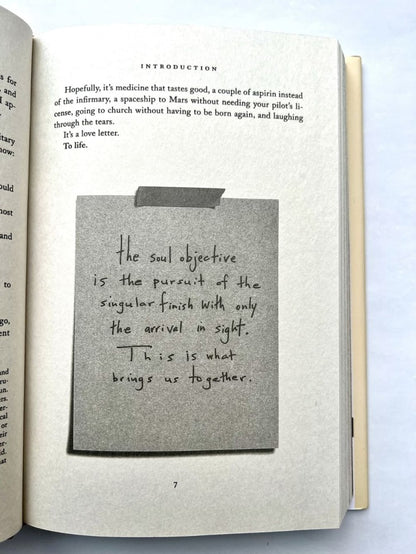 s for
, and
ap-
itary
now:
ould
most
and
to
go,
ent
and
ru-
un.
rs.
er-
cal
or
eir
er-
id.
hat
INTRODUCTION
Hopefully, it's medicine that tastes good, a couple of aspirin instead
of the infirmary, a spaceship to Mars without needing your pilot's li-
cense, going to church without having to be born again, and laughing
through the tears.
It's a love letter.
To life.
the soul objective
is the pursuit of the
singular finish with only
the arrival in sight.
This is what
brings us together.
7